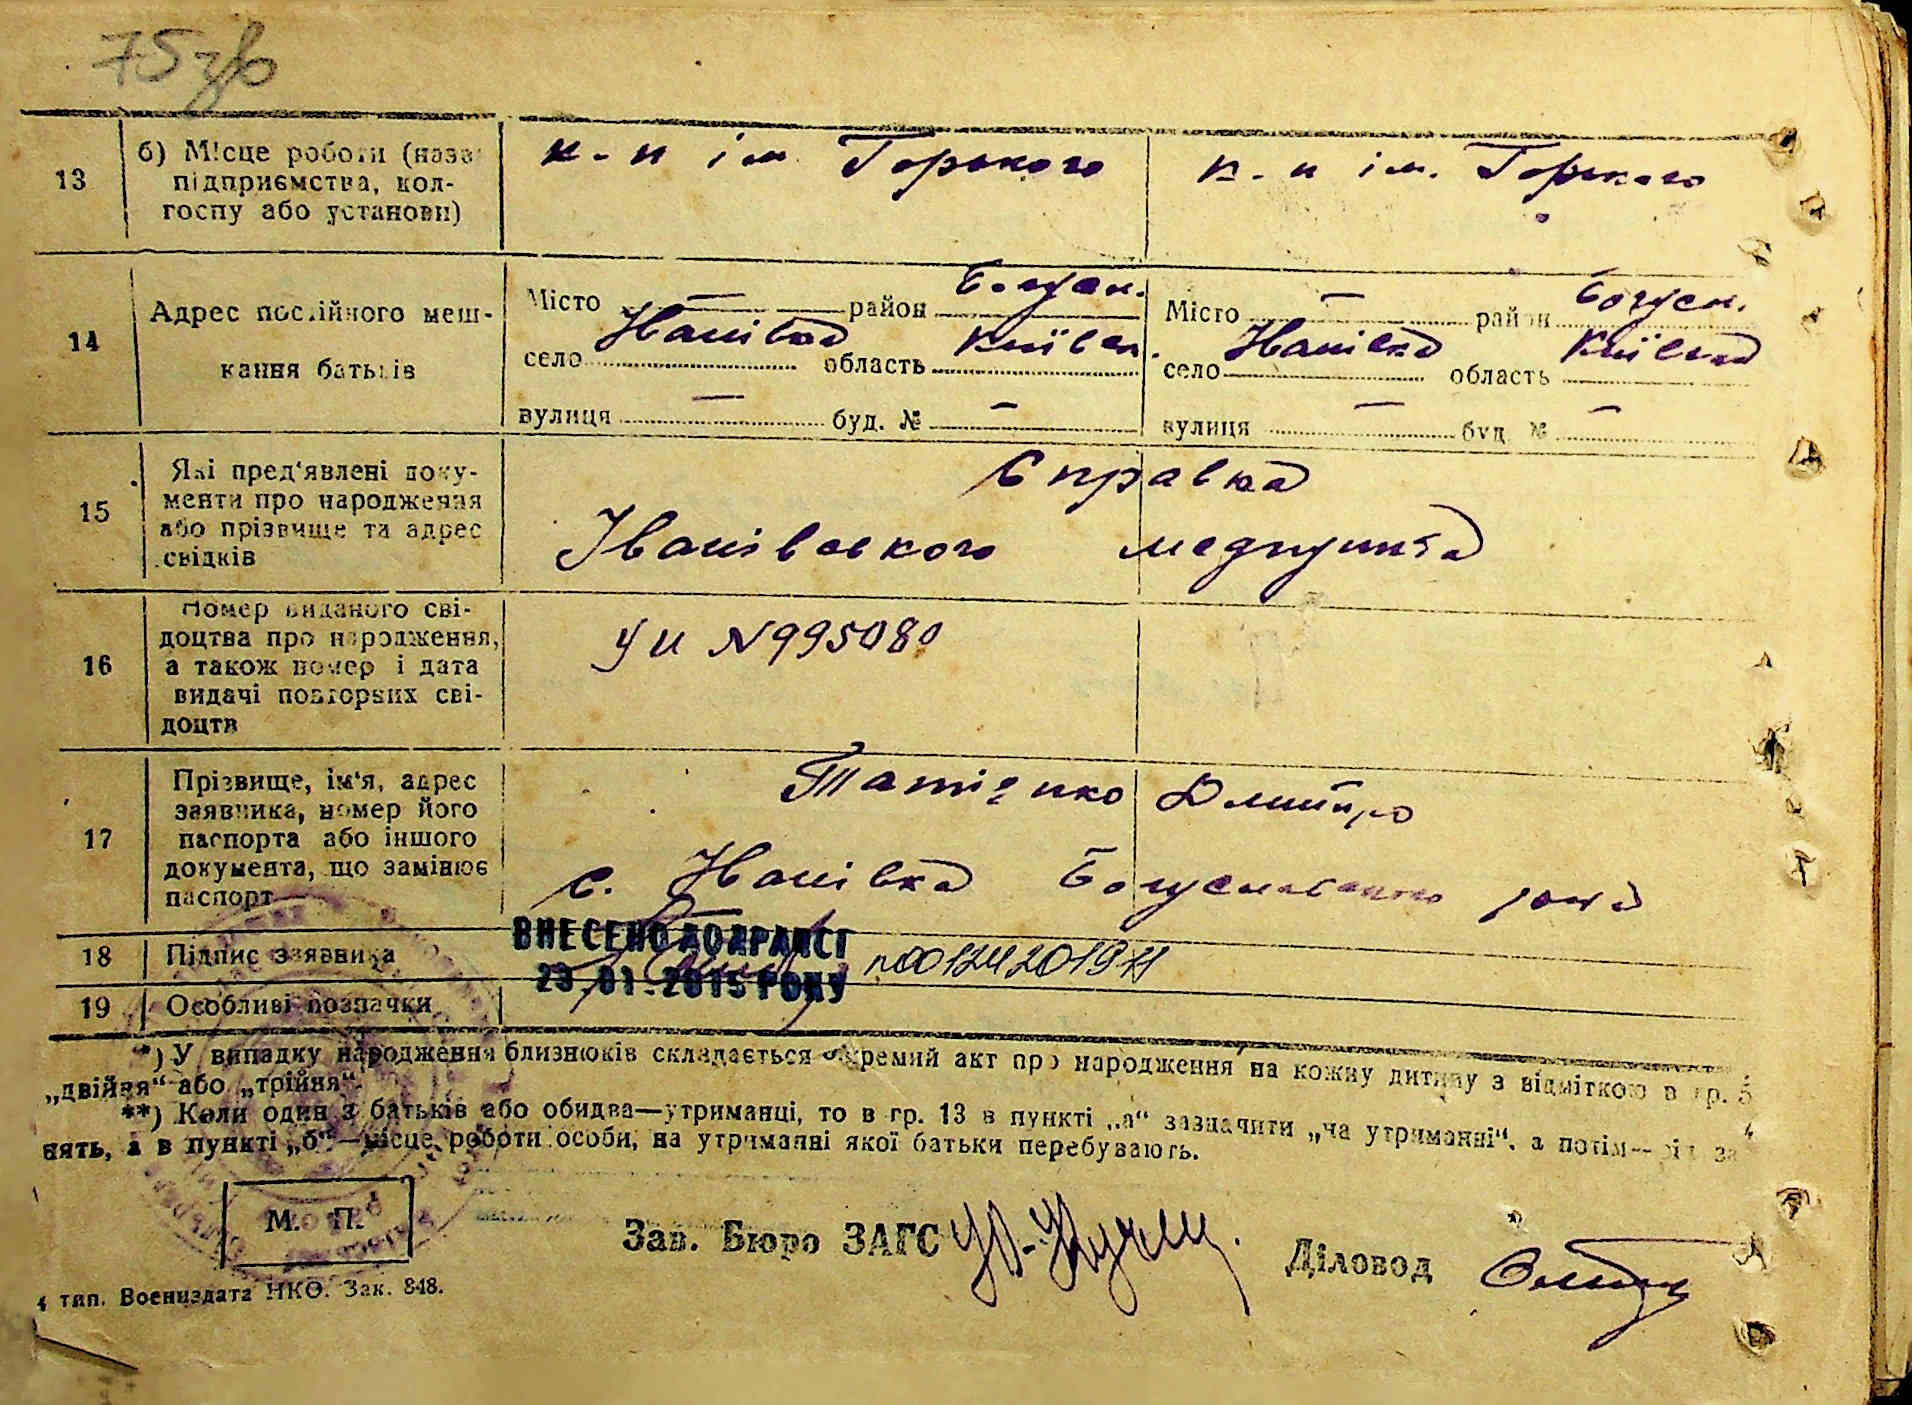 75 зв
13
б) Місце роботи (назв
підприємства, кол-
госпу або установи)
к-п ім Горького
к.п ім. Горького
14
Адрес постійного меш-
кання батьків
Місто — район Богусл.
село Іванівка область Київськ.
вулиця — буд. № —
Місто — район Богусл.
село Іванівка область Київська
вулиця — буд № —
15
Які пред'явлені доку-
менти про народження
або прізвище та адрес
свідків
Справка
Іванівського медпункта
16
Номер виданого сві-
доцтва про народження,
а також номер і дата
видачі повторних сві-
доцтв
УИ №995080
17
Прізвище, ім'я, адрес
заявника, номер його
паспорта або іншого
документа, що замінює
паспорт
Дмитро
с. Іванівка Богуславського
18
Підпис заявника
ВНЕСЕНО ДО ДРАЦСГ
23.01.2015 РОКУ
n00124201911
19
Особливі позначки
*) У випадку народження близнюків складається окремий акт про народження на кожну дитину з відміткою в гр. 5
„двійня“ або „трійня“.
**) Коли один з батьків або обидва—утриманці, то в гр. 13 в пункті „а“ зазначити „на утриманні“, а потім—рід за
нять, а в пункті „б“—місце роботи особи, на утриманні якої батьки перебувають.
М. П.
Зав. Бюро ЗАГС
Діловод
4 тип. Воениздата НКО. Зак. 848.